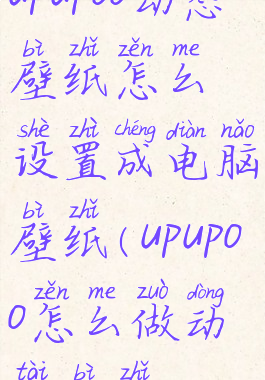 upupoo动态
bì zhǐ zěn me
壁纸怎么
shè zhì chéng diàn nǎo
设置成电脑
bì zhǐ
壁纸(upupo
zěn me zuò dòng
o怎么做动
tài bì zhǐ